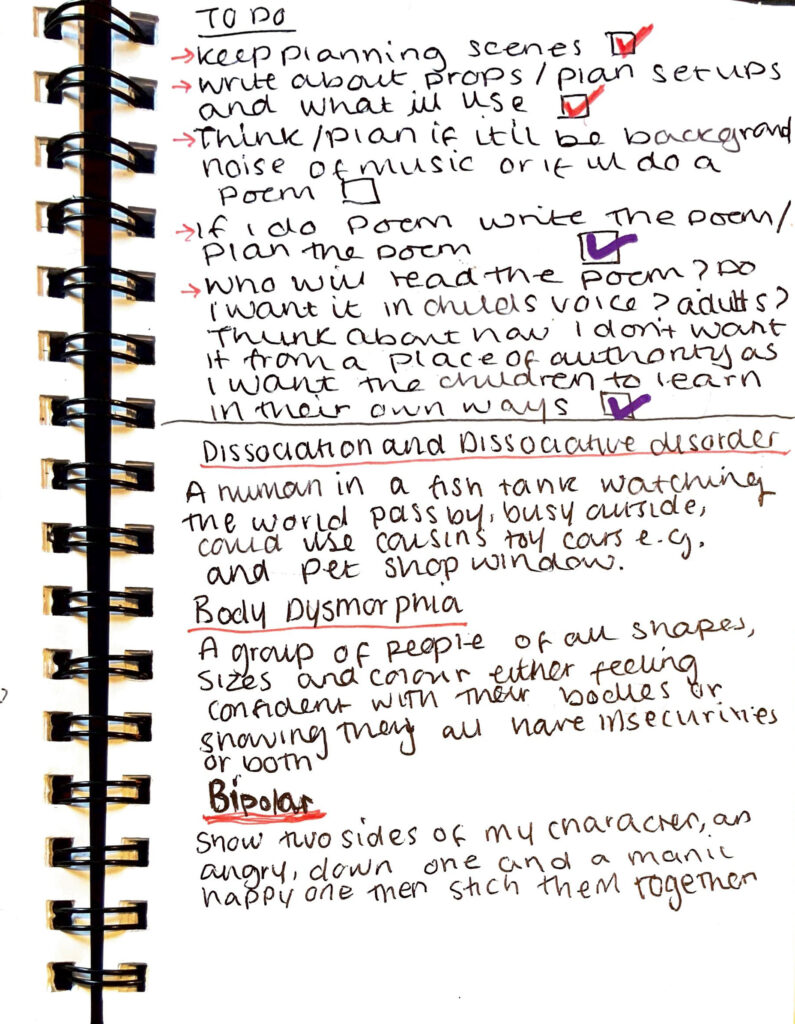 TO DO
→ keep planning scenes ☑
→ write about props/plan setups
and what ill use ☑
→ Think/plan if it'll be background
noise of music or if ill do a
poem ☐
→ If i do poem write the poem/
plan the poem ☑
→ Who will read the poem? Do
I want it in childs voice? adults?
Think about how I don't want
it from a place of authority as
I want the children to learn
in their own ways ☑
Dissociation and Dissociative disorder
A human in a fish tank watching
the world pass by, busy outside,
could use cousins toy cars e.g.
and pet shop window.
Body Dysmorphia
A group of people of all shapes,
sizes and colour either feeling
confident with their bodies or
showing they all have insecurities
or both
Bipolar
Show two sides of my character, an
angry, down one and a manic
happy one then stich them together